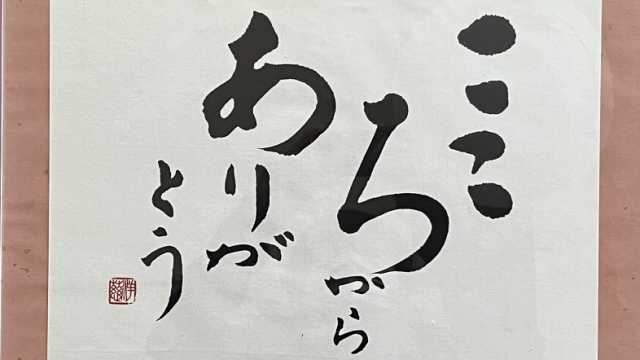 ここ
ろから
ありが
とう